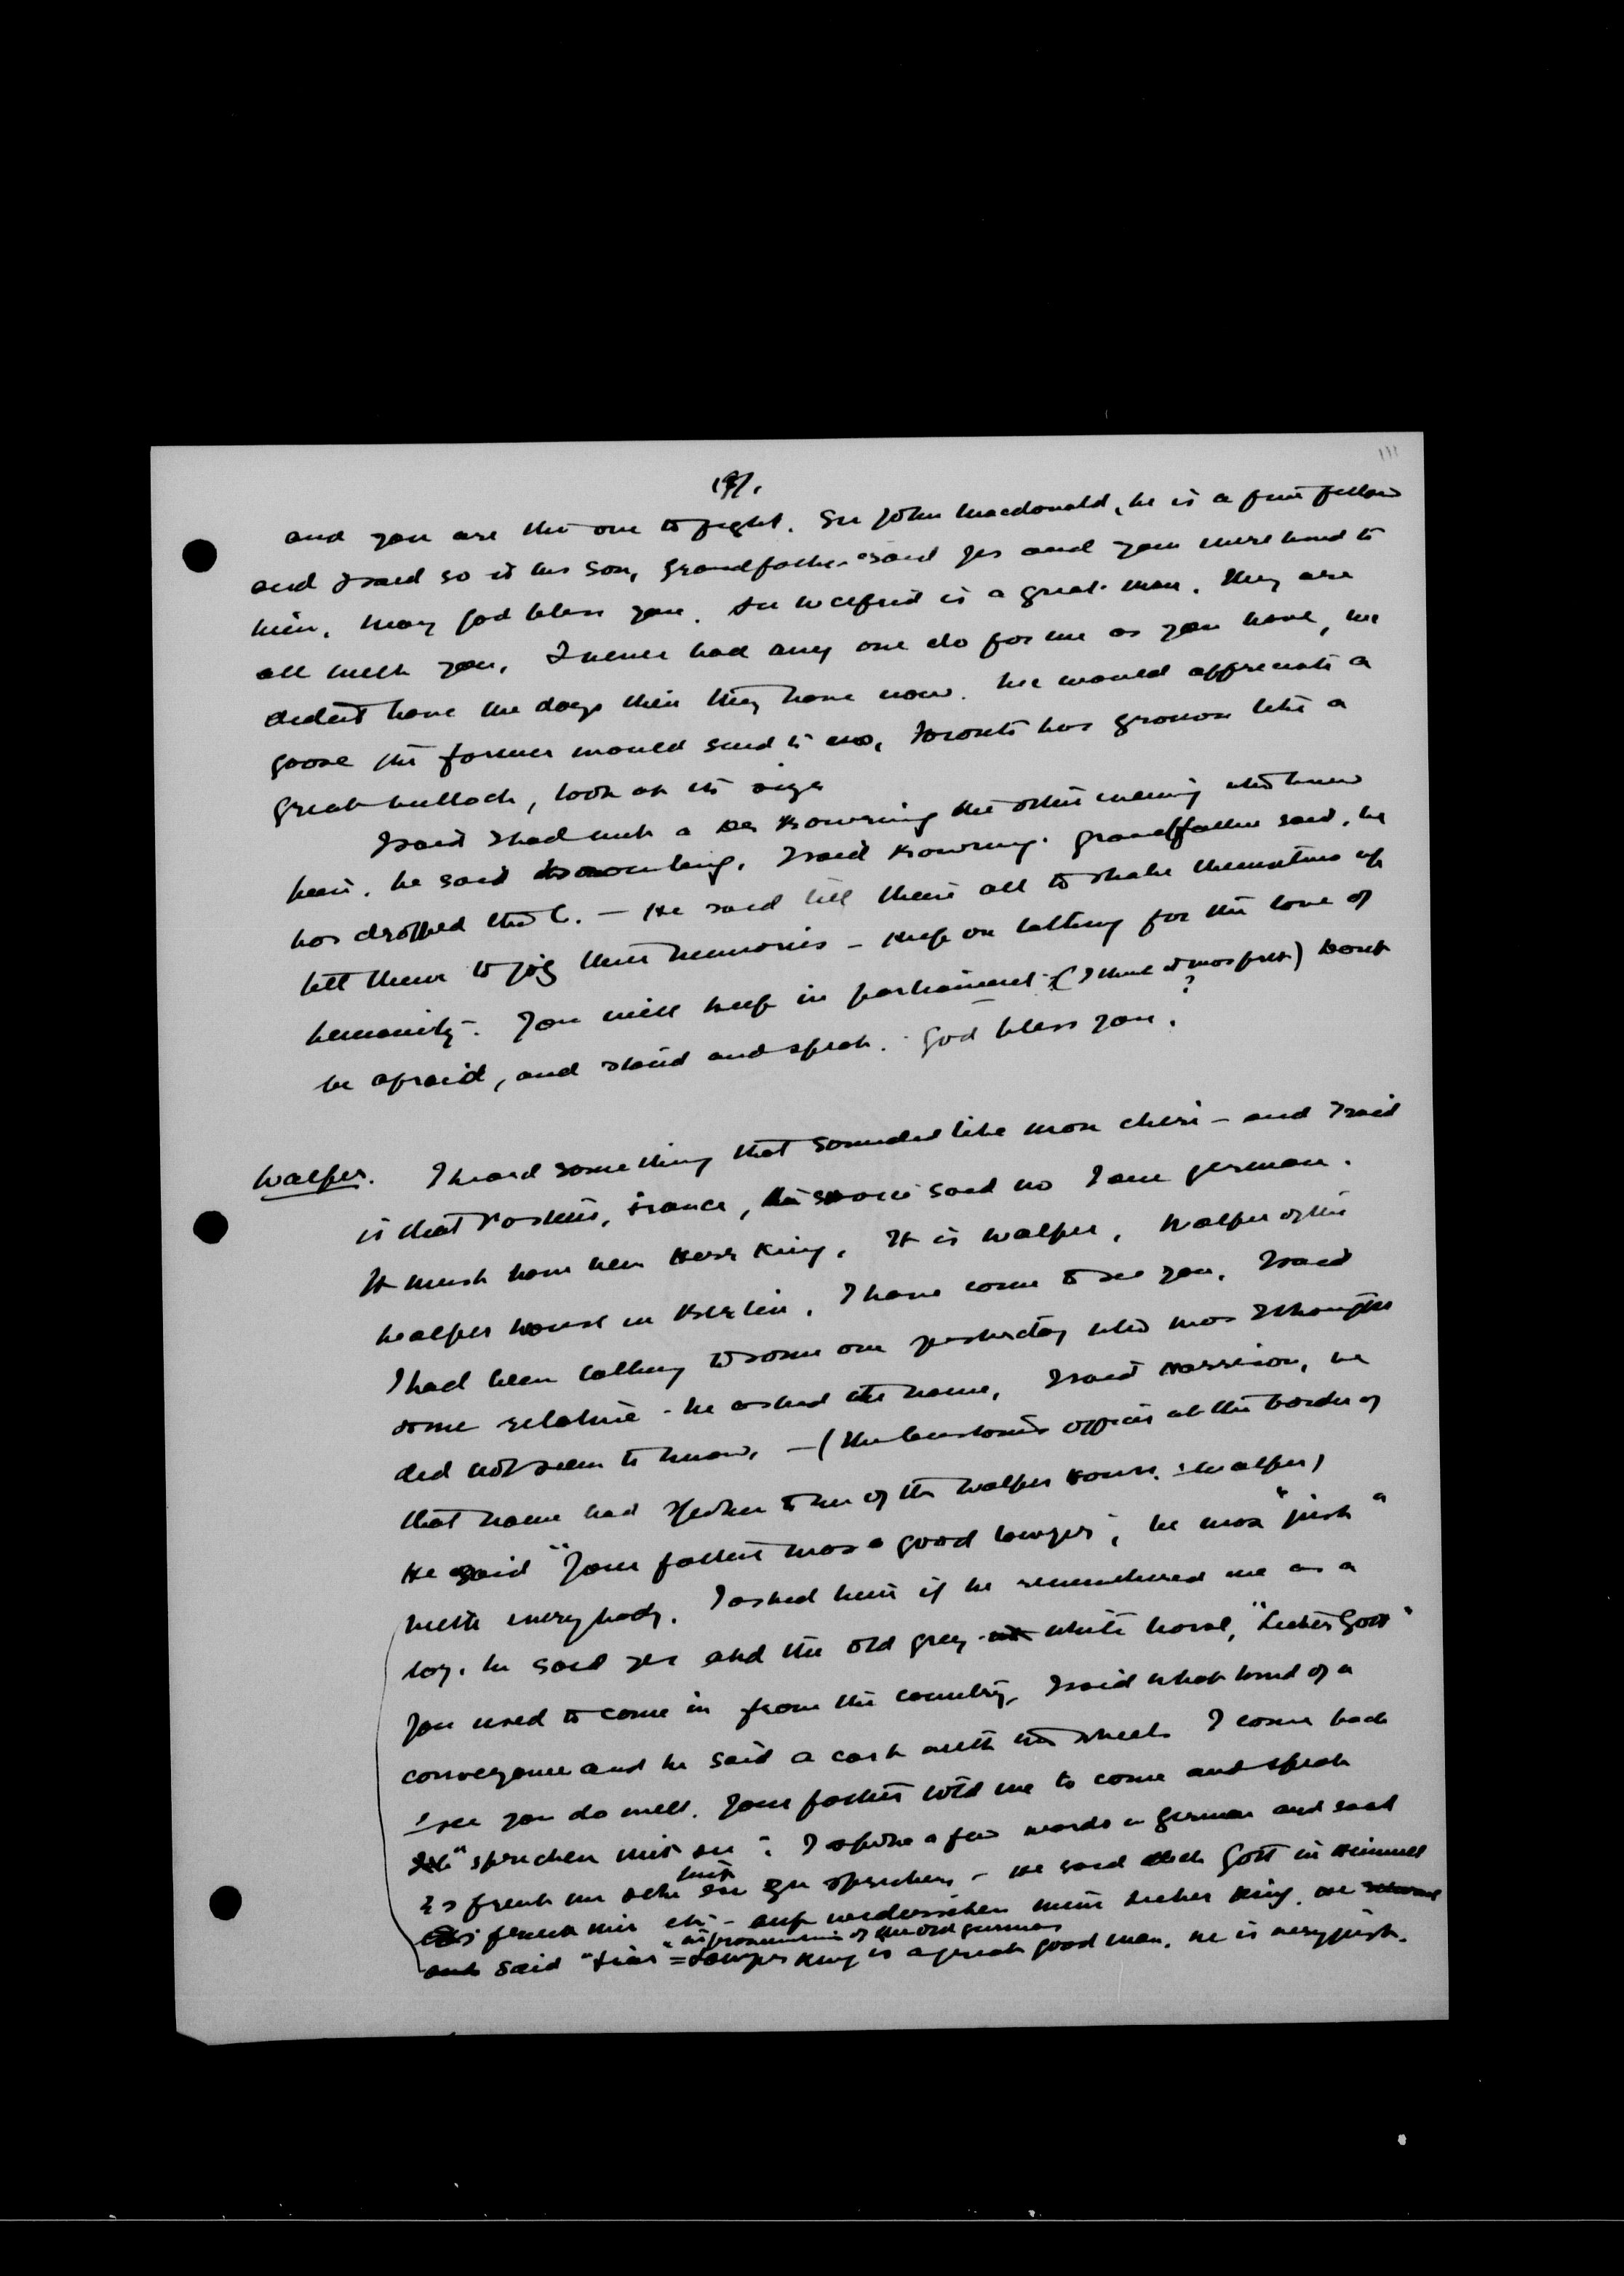 and you are the one to fight. Sir John Macdonald, he is a fine fellow
and I said so to his son, grandfather said yes and you were kind to
him, may God bless you. Sir Wilfrid is a great man. They are
all with you. I never had any one do for me as you have, we
didn't have the days then they have now. We would appreciate a
goose the farmer would send to us, Toronto has grown like a
great bullock, look at its size
I said I had met a Browning the other evening who knew
him. he said I said Browning. Grandfather said, he
has dropped the C. — He said tell them all to shake themselves up
tell them to jog their memories – keep on talking for the love of
humanity. You will keep in parliament (I think it was first?) Dont
be afraid, and stand and speak. God bless you.
Walper. I heard something that sounded like mon cheri – and I said
is that France, the voice said no I am german.
It must have been Herr King. It is Walper, Walper of the
Walper House in Berlin. I have come to see you. I said
I had been talking to some one yesterday who was I thought
some relative – he asked the name, I said Morrison, he
did not seem to know, – (the customs officer at the border of
that name had spoken to me of the Walper House. Walper)
He said "Your father was a good lawyer", he was "just"
with everybody. I asked him if he remembered me as a
boy. he said yes and the old grey white horse, "Lieber Gott"
You used to come in from the country, I said what kind of a
conveyance and he said a cart with two wheels I come back
I see you do well. Your father told me to come and speak
"sprechen mit sie". I spoke a few words in german and said
Es freut me sehr mit sie zu sprechen – He said ach Gott in Himmel
es freut mir etc – auf wiedersehen mein lieber King. he
said "Liar" = in pronunciation of the old german
Lawyer King is a great good man. He is very just.